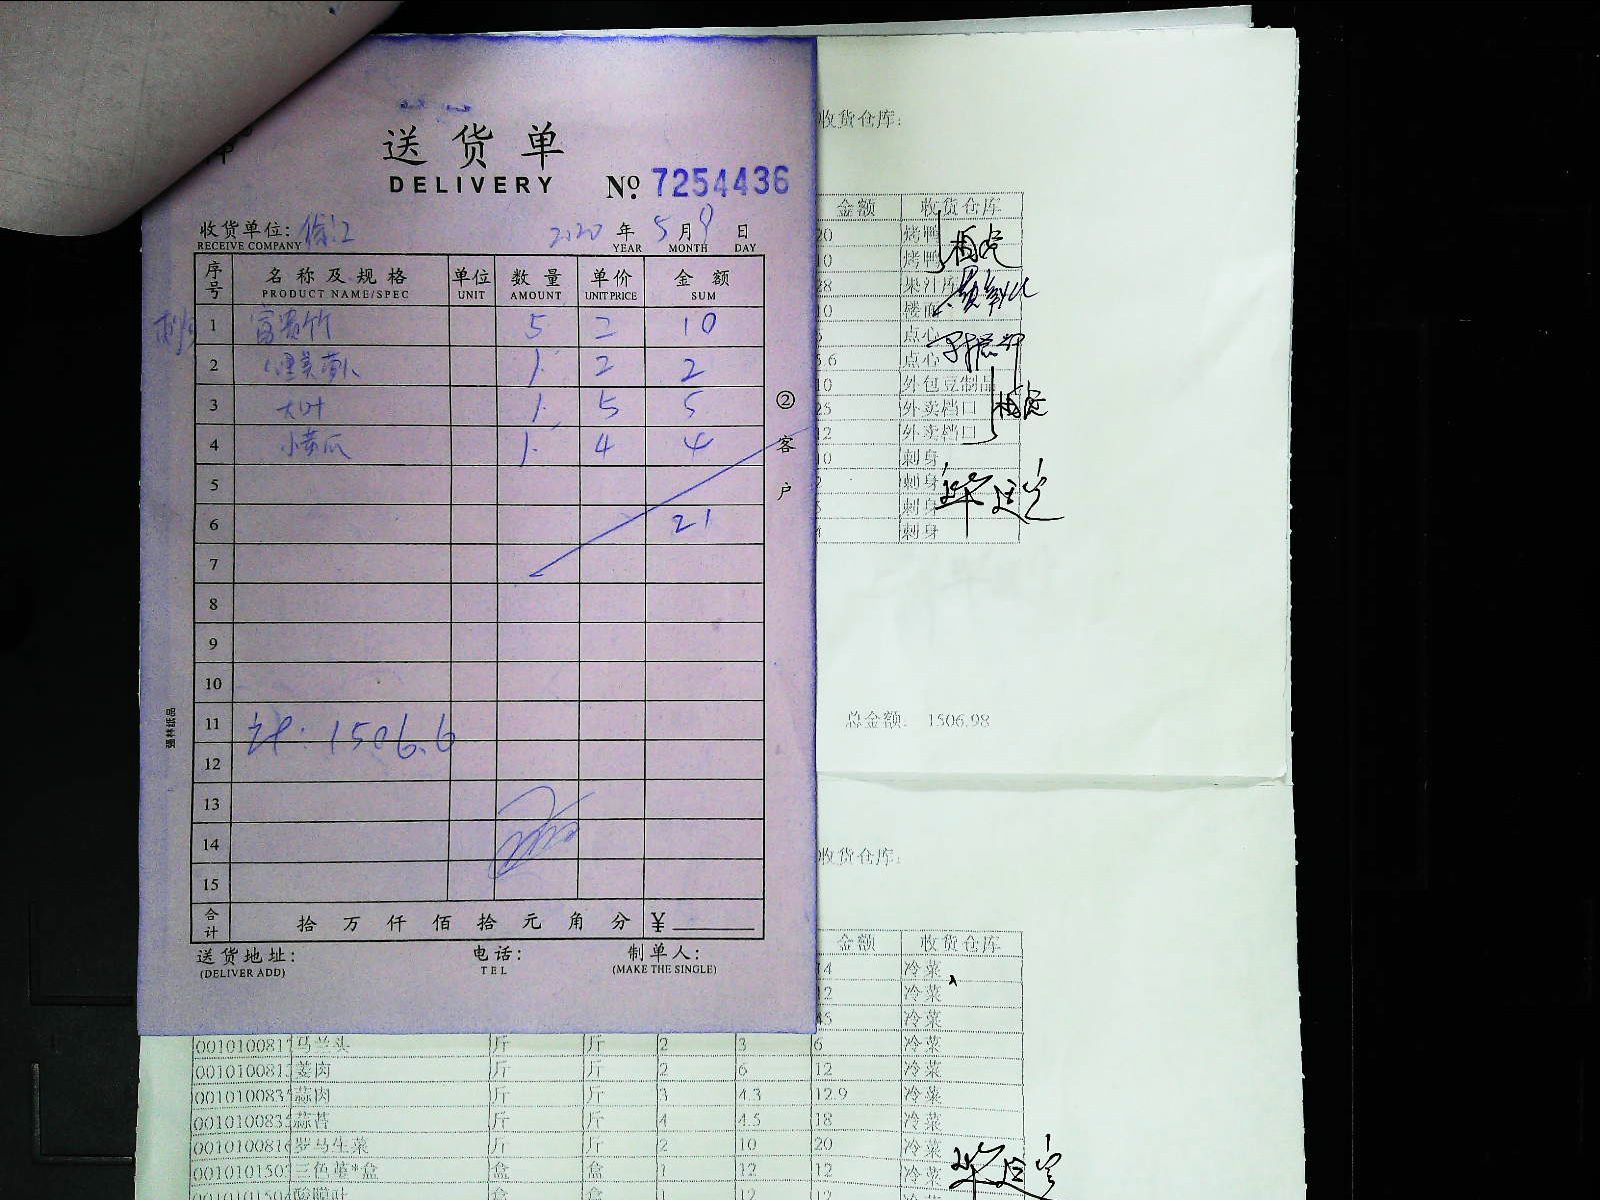 送货单
DELIVERY
№ 7254436
收货单位: 徐江 2020 年 5 月 9 日
RECEIVE COMPANY YEAR MONTH DAY
序号 名称及规格 单位 数量 单价 金额
PRODUCT NAME/SPEC UNIT AMOUNT UNIT PRICE SUM
1 富贵竹 5 2 10
2 1 2 2
3 大叶 1 5 5
4 小黄瓜 1 4 4
5
6 21
7
8
9
10
11 计: 1506.6
12
13
14
15
合计 拾 万 仟 佰 拾 元 角 分 ¥
送货地址: 电话: 制单人:
(DELIVER ADD) TEL (MAKE THE SINGLE)
②客户
强林纸品
收货仓库:
金额 收货仓库
20 烤鸭
10 烤鸭
28
10 楼面
点心
点心
10 外包豆制品
25 外卖档口
12 外卖档口
10 刺身
刺身
刺身
刺身
总金额: 1506.98
收货仓库:
金额 收货仓库
14 冷菜
12 冷菜
45 冷菜
马兰头 斤 斤 2 3 6 冷菜
姜肉 斤 斤 2 6 12 冷菜
蒜肉 斤 斤 3 4.3 12.9 冷菜
蒜苔 斤 斤 4 4.5 18 冷菜
罗马生菜 斤 斤 2 10 20 冷菜
三色堇*盒 盒 盒 1 12 12 冷菜